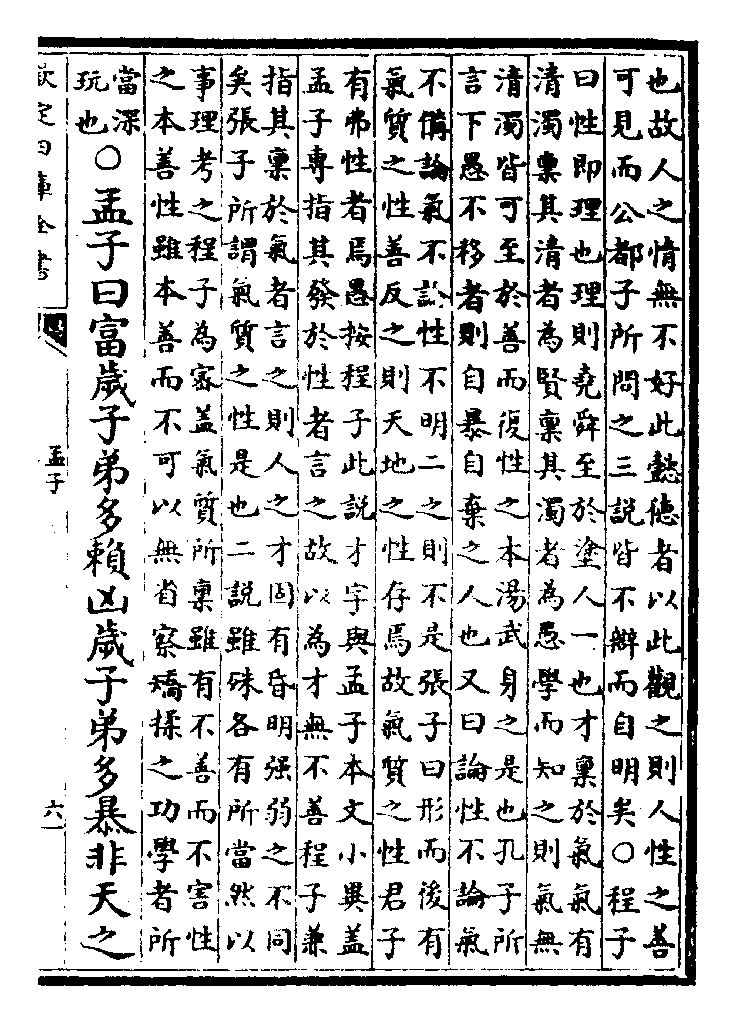 也故人之情無不好此懿德者以此觀之則人性之善
可見而公都子所問之三說皆不辯而自明矣〇程子
曰性即理也理則堯舜至於塗人一也才稟於氣氣有
清濁稟其清者為賢稟其濁者為愚學而知之則氣無
清濁皆可至於善而復性之本湯武身之是也孔子所
言下愚不移者則自暴自棄之人也又曰論性不論氣
不備論氣不論性不明二之則不是張子曰形而後有
氣質之性善反之則天地之性存焉故氣質之性君子
有弗性者焉愚按程子此說才字與孟子本文小異盖
孟子專指其發於性者言之故以為才無不善程子兼
指其稟於氣者言之則人之才固有昏明强弱之不同
矣張子所謂氣質之性是也二說雖殊各有所當然以
事理考之程子為密盖氣質所稟雖有不善而不害性
之本善性雖本善而不可以無省察矯揉之功學者所
當深
玩也
〇孟子曰富歲子弟多賴凶歲子弟多暴非天之
欽定四庫全書
孟子
六一